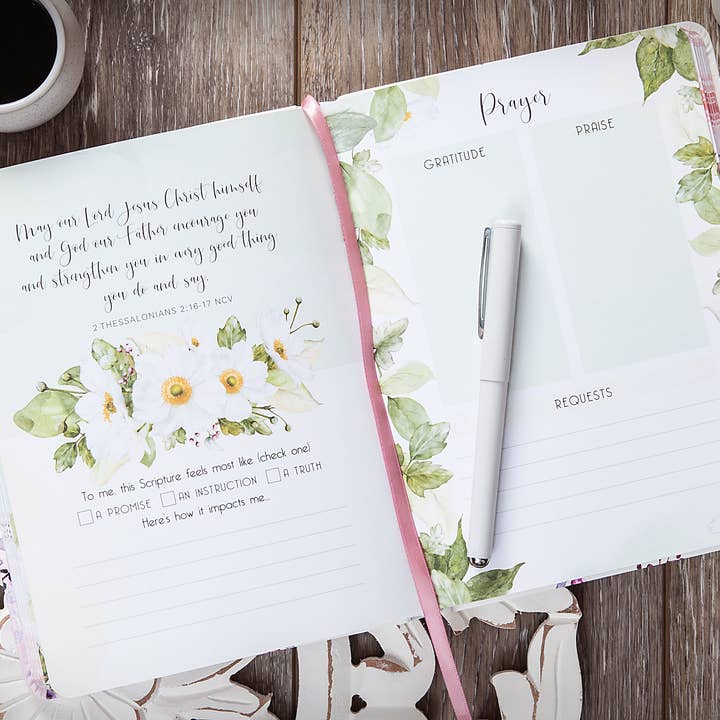 May our Lord Jesus Christ himself
and God our Father encourage you
and strengthen you in every good thing
you do and say.
2 THESSALONIANS 2:16-17 NCV
To me, this Scripture feels most like (check one)
A PROMISE AN INSTRUCTION A TRUTH
Here's how it impacts me...
Prayer
GRATITUDE
PRAISE
REQUESTS